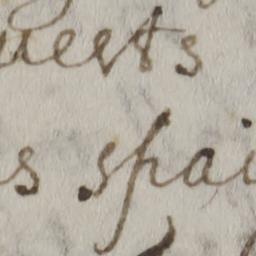 uests
s spai